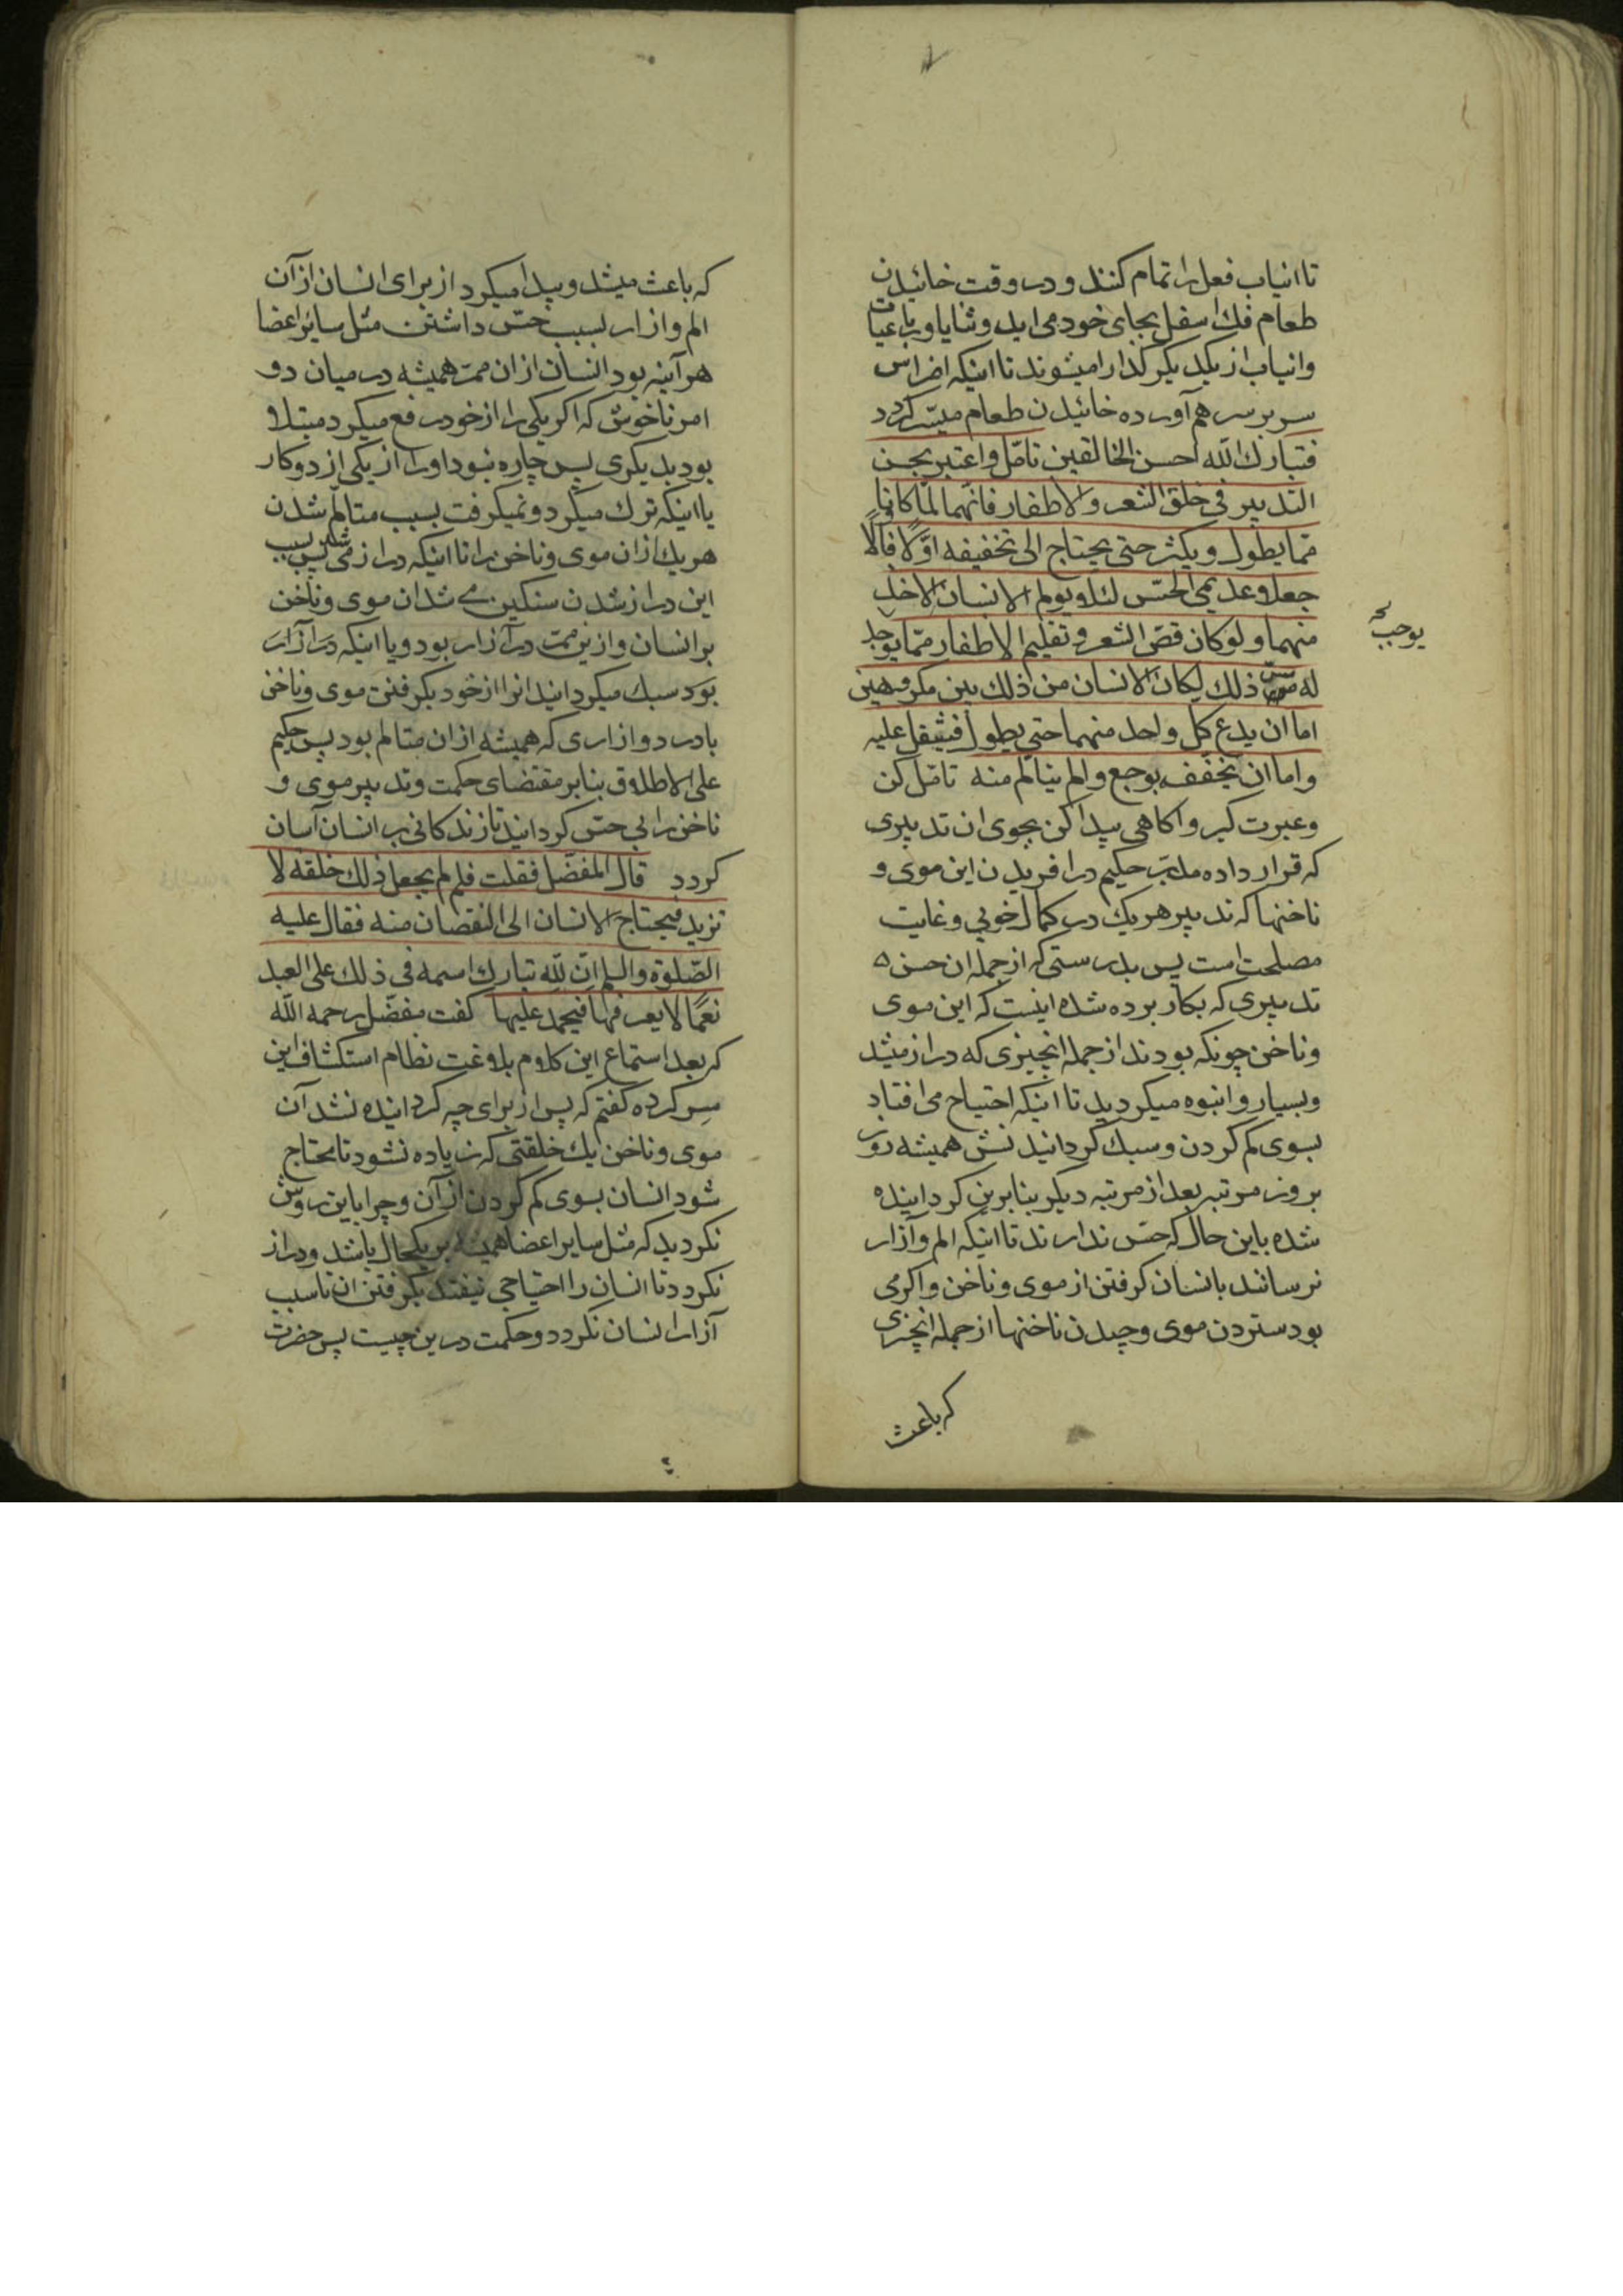 تا انیاب فعل را تمام کنند و در وقت خائیدن
طعام فك اسفل بجای خود می اید و ثنایا و رباعیات
و انیاب از یکدیکر کذارا میشوند تا اینکه اضراس
سر بر سر هم آورده خائیدن طعام میسّر کردد
فتبارك اللّه احسن الخالقین تامّل و اعتبر بحسن
التدبیر فی خلق الشعر و الاظفار فانّهما لمّا کانا
ممّا یطول و یکثر حتی یحتاج الی تخفیفه اوّلا فاوّلًا
جعلا عدیمی الحسّ لئلا یولم الانسان الاخذ
منهما و لو کان قصّ الشعر و تقلیم الاظفار ممّا یوجد
یوجب
له مسّ ذلك لکان الانسان من ذلك بین مکروهین
اما ان یدع کل واحد منهما حتی یطول فیثقل علیه
و اما ان یخفّفه بوجع و الم یتالّم منه تامّل کن
و عبرت کیر و اکاهی پیدا کن بخوبی ان تدبیری
که قرار داده مدبّر حکیم در افریدن این موی و
ناخنها که تدبیر هر یك در کمال خوبی و غایت
مصلحت است پس بدرستی که از جمله ان حسن
تدبیری که بکار برده شده اینست که این موی
و ناخن چونکه بودند از جمله انچیزی که دراز میشد
و بسیار و انبوه میکردید تا اینکه احتیاج می افتاد
بسوی کم کردن و سبك کردانیدنش همیشه روز
بروز مرتبه بعد از مرتبه دیکر بنابرین کردانیده
شده باین حال که حسّ ندارند تا اینکه الم و آزار
نرسانند بانسان کرفتن از موی و ناخن و اکر می
بود ستردن موی و چیدن ناخنها از جمله انچیزی
که باعث
که باعث میشد و پیدا میکرد از برای انسان از آن
الم و ازار بسبب حسّ داشتن مثل سایر اعضا
هر آینه بود انسان از ان ممرّ همیشه در میان دو
امر ناخوش که اکر یکی را از خود رفع میکرد مبتلا
بود بدیکری پس چاره نبود او را از یکی از دو کار
یا اینکه ترك میکرد و نمیکرفت بسبب متالّم شدن
هر یك از ان موی و ناخن را تا اینکه دراز می شد پس بسبب
این دراز شدن سنکین می شد ان موی و ناخن
بر انسان و ازین ممرّ در آزار بود و یا اینکه در آزار
بود سبك میکردانید انرا از خود بکرفتن موی و ناخن
با درد و ازاری که همیشه از ان متالم بود پس حکیم
علی الاطلاق بنابر مقتضای حکمت و تدبیر موی و
ناخن را بی حسّ کردانید تا زندکانی بر انسان آسان
کردد قال المفضّل فقلت فلم لم یجعل ذلك خلقة لا
تزید فیحتاج الانسان الی النقصان منه فقال علیه
الصّلوة و السلم انّ للّه تبارك اسمه فی ذلك علی العبد
نعمًا لا یعرفها فیحمد علیها کفت مفضّل رحمه اللّه
که بعد استماع این کلام بلاغت نظام استکشاف این
سر کرده کفتم که پس از برای چه کردانیده نشد آن
موی و ناخن یك خلقتی که زیاده نشود تا محتاج
شود انسان بسوی کم کردن از آن و چرا باین روش
نکردید که مثل سایر اعضا همیشه بر یکحال باشد و دراز
نکردد تا انسان را احتیاجی نیفتد بکرفتن ان تا سبب
آزار انسان نکردد و حکمت درین چیست پس حضرت